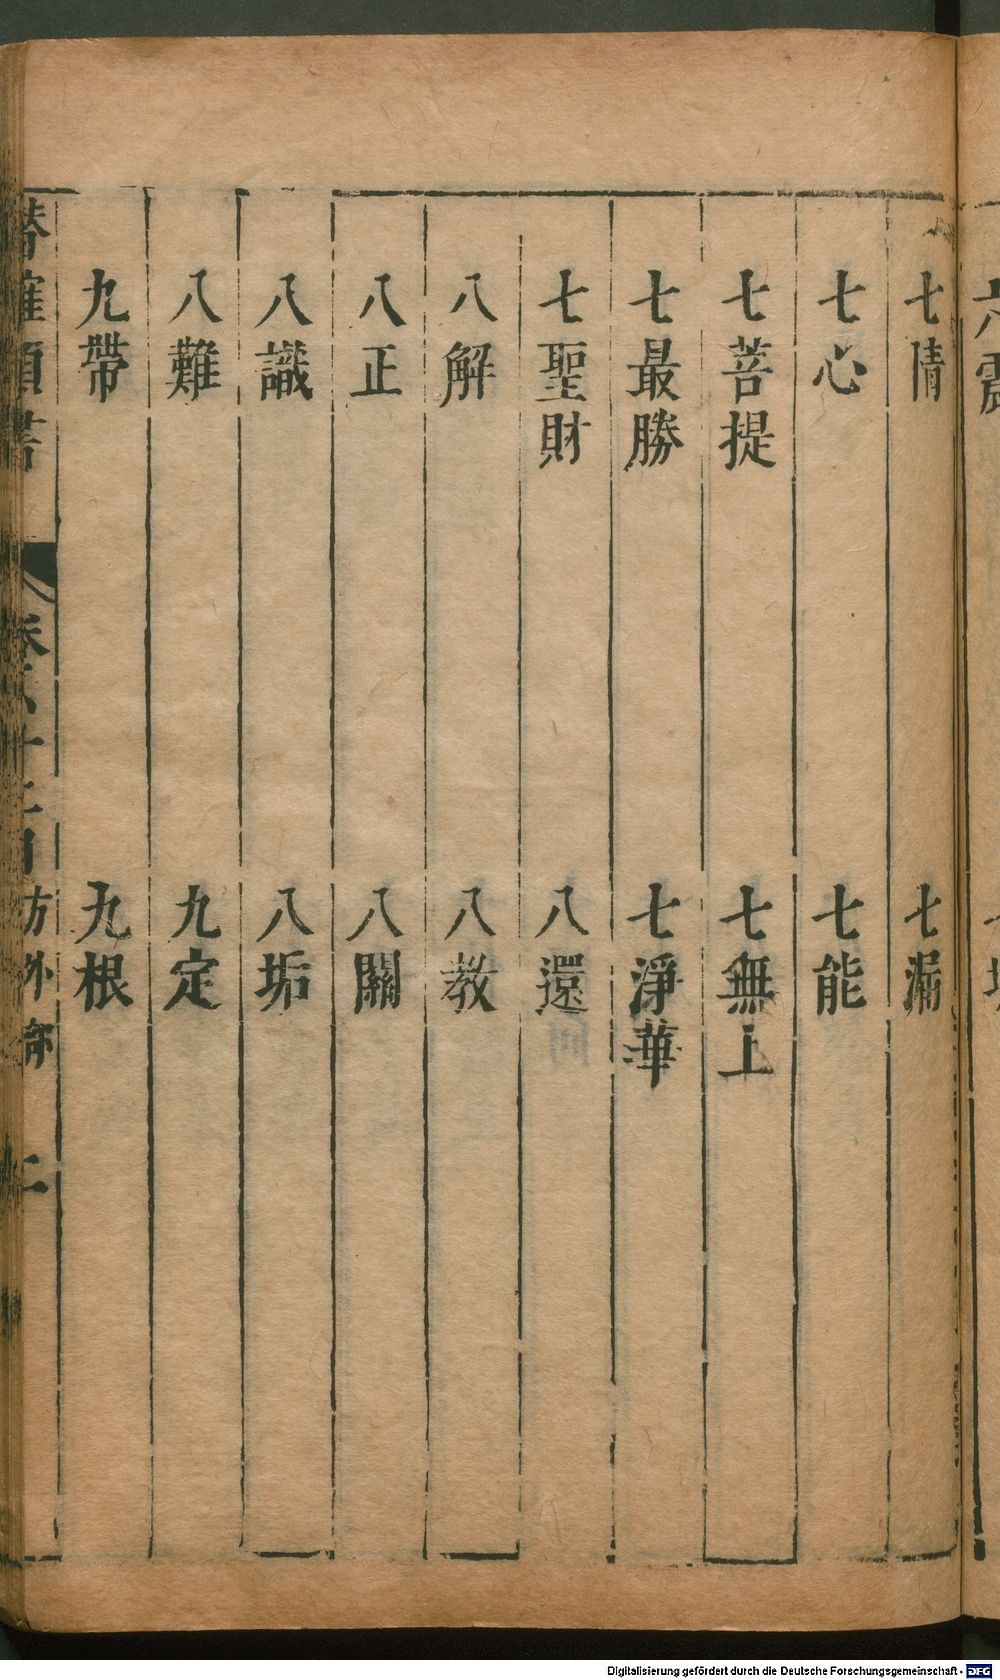 七情　七漏
七心　七能
七菩提　七無上
七最勝　七淨華
七聖財　八還
八解　八教
八正　八關
八識　八垢
八難　九定
九帶　九根
方外部　二
Digitalisierung gefördert durch die Deutsche Forschungsgemeinschaft - DFG